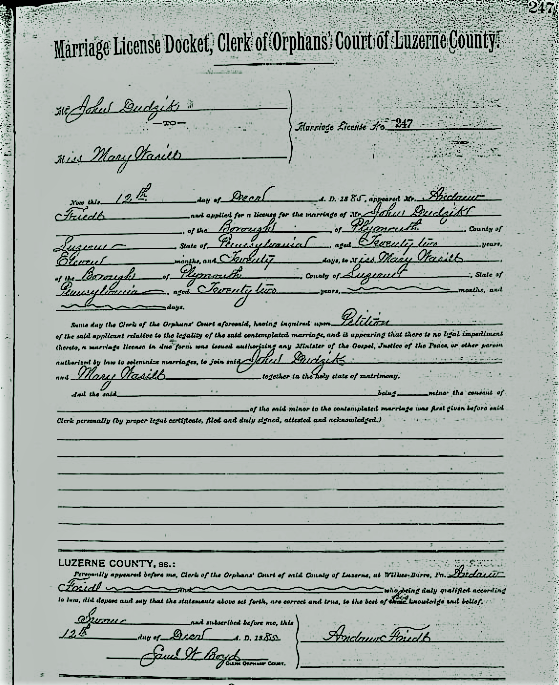 247
Marriage License Docket, Clerk of Orphans' Court of Luzerne County.
Mr. John Dudzik
—TO—
Marriage License No. 247
Miss Mary Wasilt
Now this 12th day of Decr A. D. 1885, appeared Mr. Andrew
Friedt and applied for a license for the marriage of Mr. John Dudzik
, of the Borough of Plymouth, County of
Luzerne, State of Pennsylvania, aged Twenty two years,
Eleven months, and Twenty days, to Miss Mary Wasilt
of the Borough of Plymouth County of Luzerne, State of
Pennsylvania, aged Twenty two years, months, and
days.
Same day the Clerk of the Orphans' Court aforesaid, having inquired upon Petition
of the said applicant relative to the legality of the said contemplated marriage, and it appearing that there is no legal impediment
thereto, a marriage license in due form was issued authorizing any Minister of the Gospel, Justice of the Peace, or other person
authorized by law to solemnize marriages, to join said John Dudzik
and Mary Wasilt together in the holy state of matrimony.
And the said being minor the consent of
of the said minor to the contemplated marriage was first given before said
Clerk personally (by proper legal certificate, filed and duly signed, attested and acknowledged.)
LUZERNE COUNTY, ss.:
Personally appeared before me, Clerk of the Orphans' Court of said County of Luzerne, at Wilkes-Barre, Pa. Andrew
Friedt and who being duly qualified according
to law, did depose and say that the statements above set forth, are correct and true, to the best of his knowledge and belief.
Sworn and subscribed before me, this
12th day of Decr A. D. 1885
Andrew Friedt
Saml W Boyd
CLERK ORPHANS' COURT.